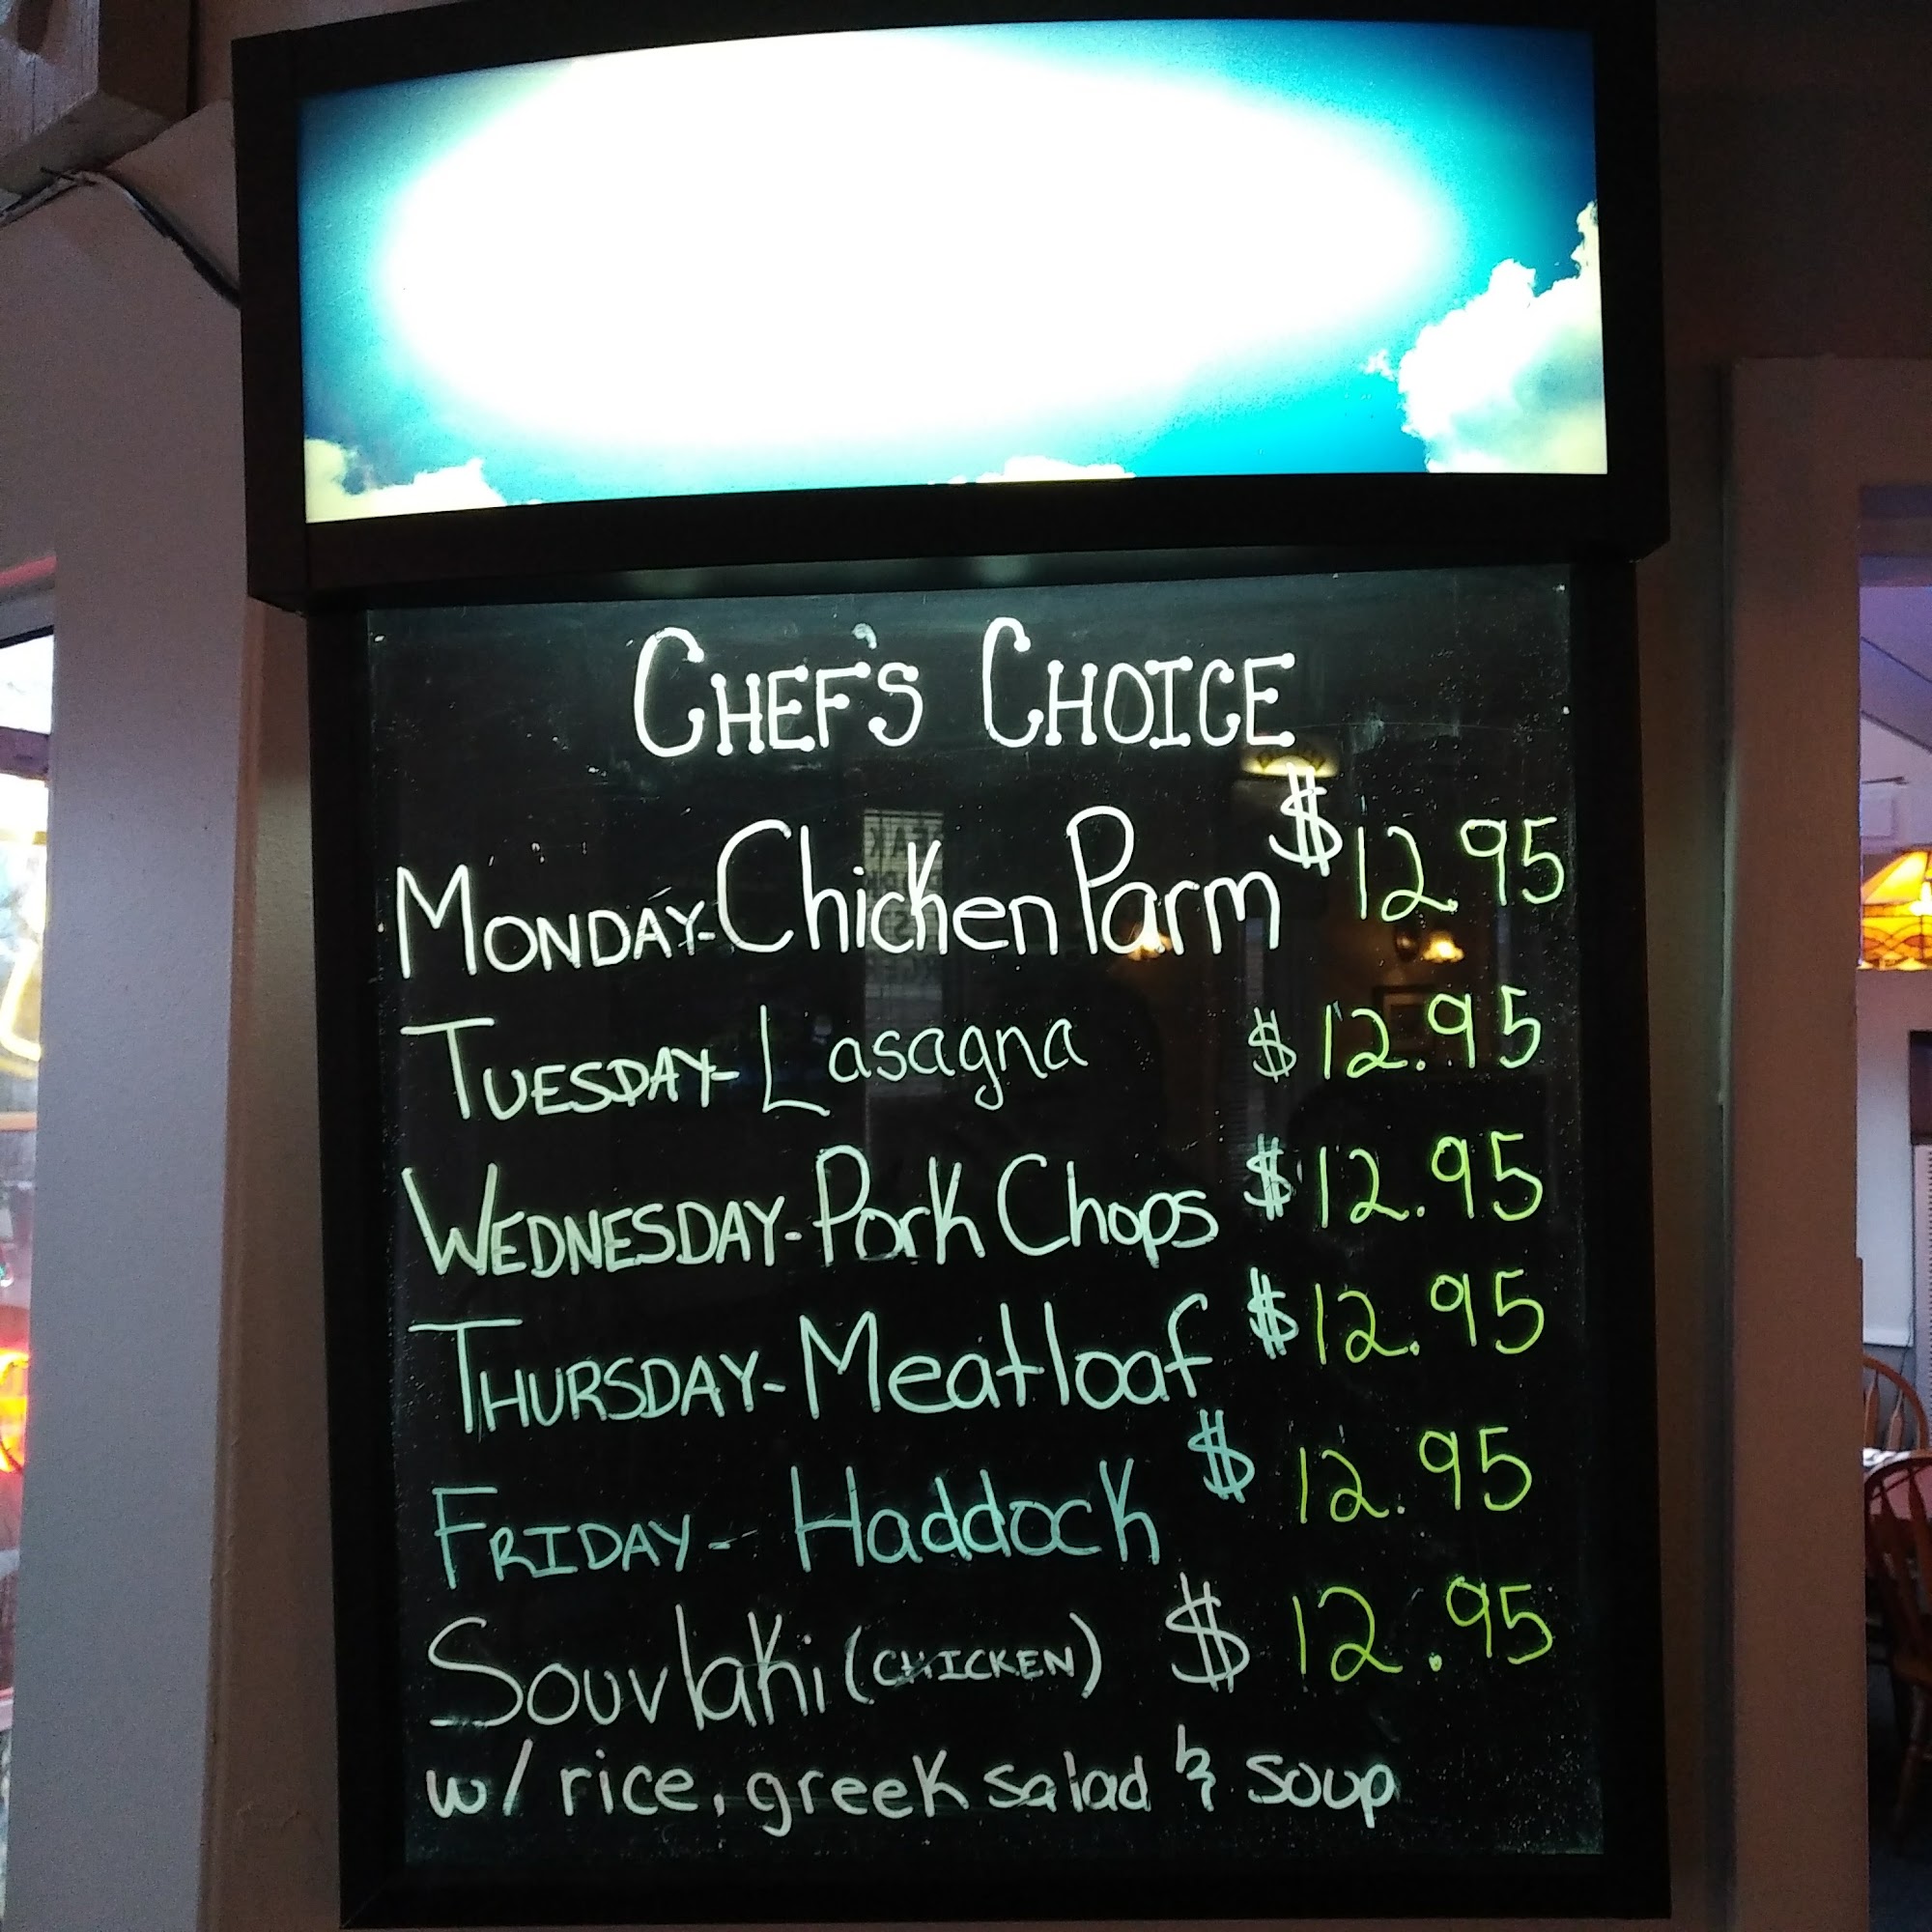 CHEF'S CHOICE
MONDAY-Chicken Parm $12.95
TUESDAY-Lasagna $12.95
WEDNESDAY-Pork Chops $12.95
THURSDAY-Meatloaf $12.95
FRIDAY-- Haddock $12.95
Souvlaki (CHICKEN) $12.95
w/ rice, greek salad & soup